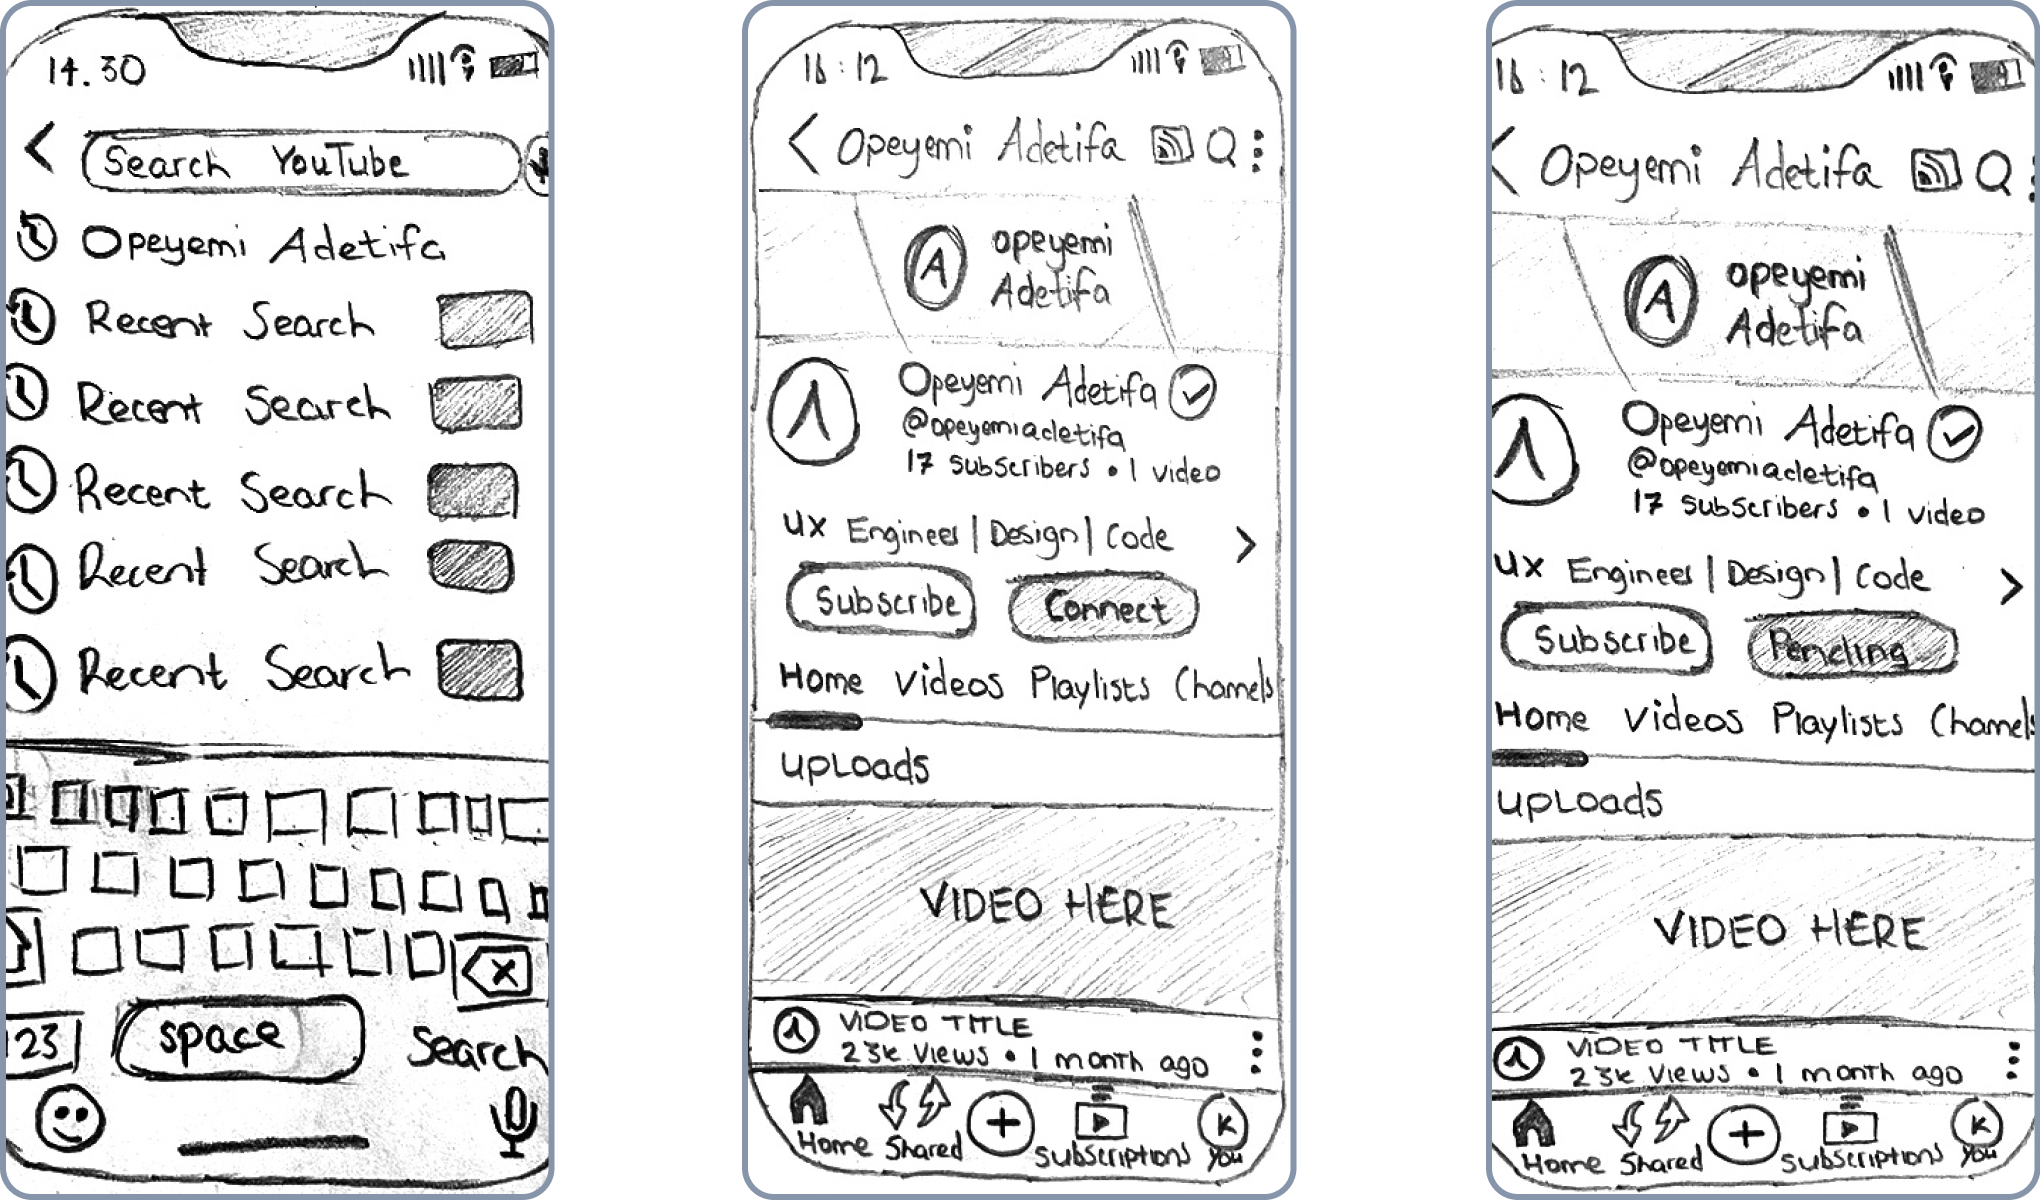 14.30
Search YouTube
Opeyemi Adetifa
Recent Search
Recent Search
Recent Search
Recent Search
Recent Search
123
space
Search
16:12
Opeyemi Adetifa
A
opeyemi
Adetifa
Opeyemi Adetifa
@opeyemiadetifa
17 subscribers • 1 video
UX Engineer | Design | Code
Subscribe Connect
Home Videos Playlists Channels
UPLOADS
VIDEO HERE
VIDEO TITLE
23k Views • 1 month ago
K
Home Shared Subscriptions You
16:12
Opeyemi Adetifa
A
opeyemi
Adetifa
Opeyemi Adetifa
@opeyemiadetifa
17 subscribers • 1 video
UX Engineer | Design | Code
Subscribe Pending
Home Videos Playlists Channels
UPLOADS
VIDEO HERE
VIDEO TITLE
23k Views • 1 month ago
K
Home Shared Subscriptions You